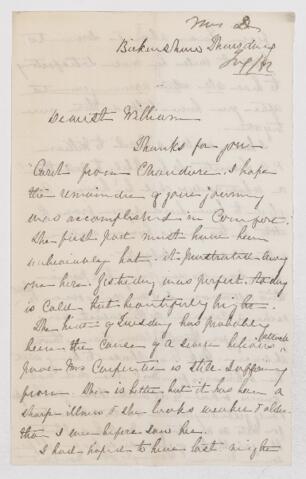 Mrs D
Thursday
Dearest William
Thanks for your
Card from . I hope
the remainder of your journey
was accomplished in Comfort.
The first part must have been
unbearably hot. it prostrated every
one here. Yesterday was perfect. today
is Cold but beautifully bright.
The heat of Tuesday has probably
been the cause of a severe bilious attack
Mrs Carpenter is still suffering
from. She is better but it has been a
sharp illness & she looks weaker & older
than I ever before saw her.
I had hoped to have last night